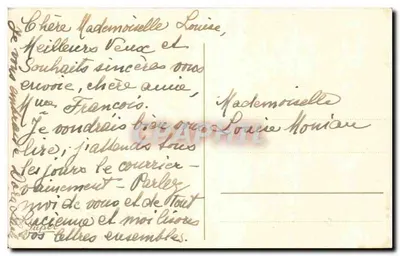 Chère Mademoiselle Louise,
Meilleurs Veux et
Souhaits sincères vous
envoie, chère amie,
Mme François.
Je voudrais bien vous
lire; j'attends tous
les jours le courrier
vainement - Parlez
moi de vous et de tout
Lucienne et moi lisons
vos lettres ensembles.
Je vous embrasse
Mademoiselle
Louise Moniau